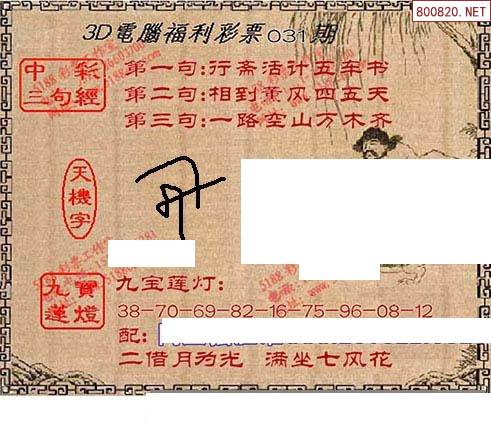 800820.NET
3D電腦福利彩票031期
中彩
三句經
第一句:行斋活计五车书
第二句:相到薰风四五天
第三句:一路空山万木齐
天機字
九寶
蓮燈
九宝莲灯:
38-70-69-82-16-75-96-08-12
配:
二借月为光 满坐七风花